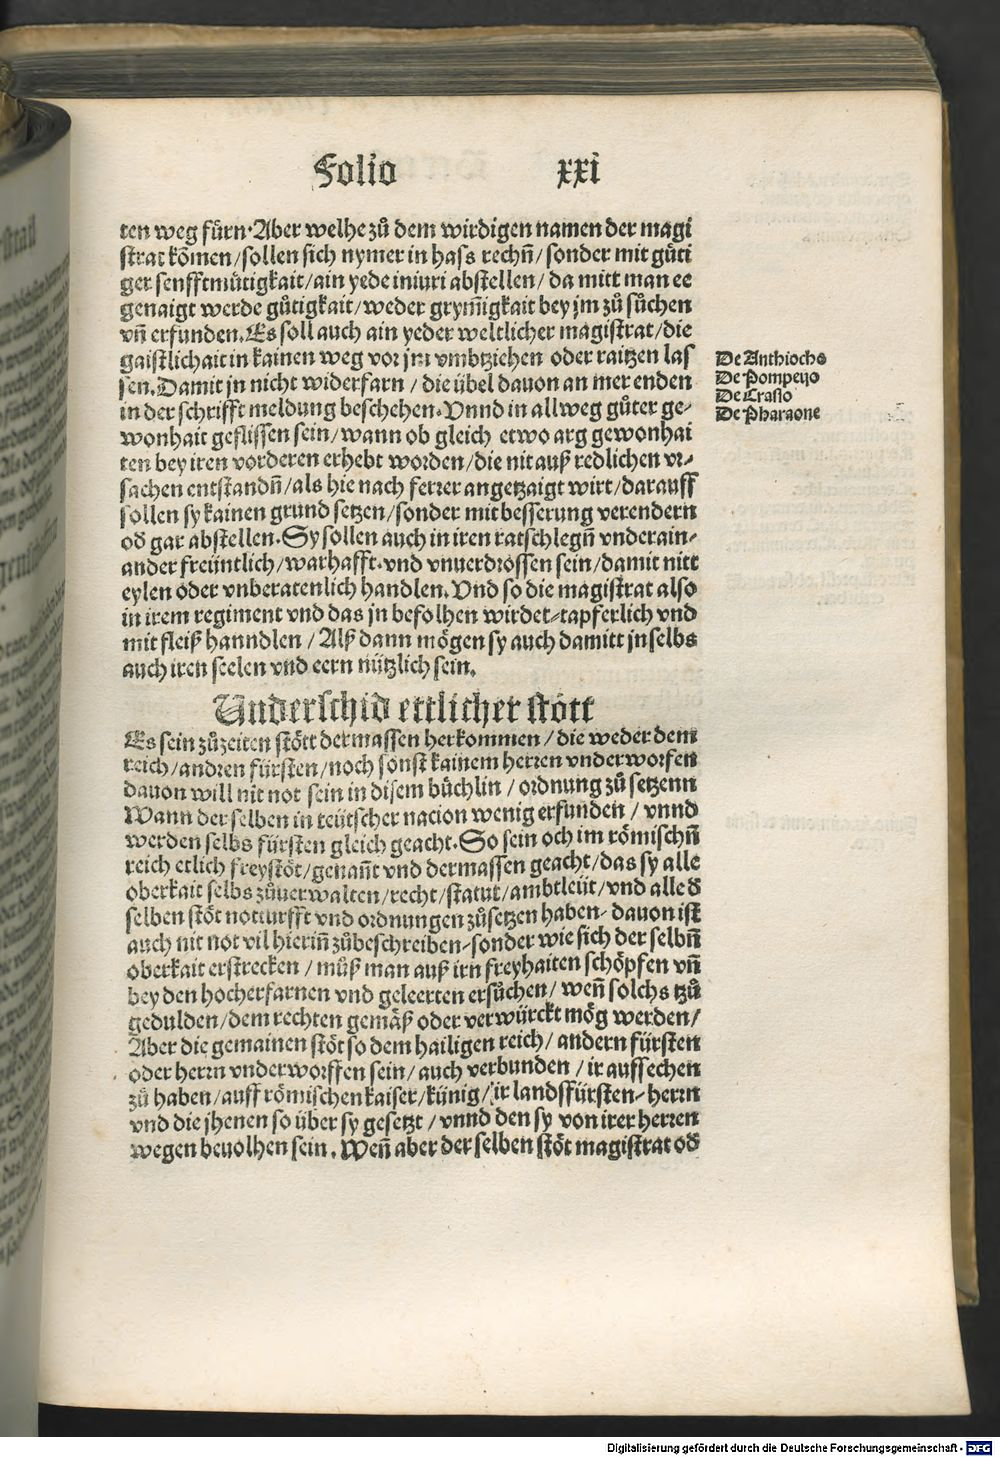 Folio xxi
ten weg fürn. Aber welhe zů dem wirdigen namen der magi
strat kömen/sollen sich nymer in hass rechñ/sonder mit gůti
ger sennfftmütigkait/ain yede iniuri abstellen/da mitt man ee
genaigt werde gůtigkait/weder grym̃igkait bey jm zů sůchen
vñ erfunden. Es soll auch ain yeder weltlicher magistrat/die
gaistlichait in kainen weg vor jm vmbtziehen oder raitzen las
sen. Damit jn nicht widerfarn/die übel dauon an mer enden
in der schrifft meldung beschehen. Vnnd in allweg gůter ge-
wonhait geflissen sein/wann ob gleich etwo arg gewonhai
ten bey iren vorderen erhebt worden/die nit auß redlichen vr-
sachen entstandñ/als hie nach ferrer angetzaigt wirt/darauff
sollen sy kainen grund setzen/sonder mit besserung verendern
oď gar abstellen. Sy sollen auch in iren ratschlegñ vnderain-
ander freüntlich/warhafft. vnd vnuerdrossen sein/damit nitt
eylen oder vnberatenlich handlen. Vnd so die magistrat also
in irem regiment vnd das jn befolhen wirdet-tapferlich vnd
mit fleiß hanndlen/Alß dann mögen sy auch damitt jn selbs
auch iren seelen vnd eern nützlich sein.
De Anthiocho
De Pompeyo
De Crasso
De Pharaone
Underschid ettlicher stött
Es sein zůzeiten stött dermassen herkommen/die weder dem
reich/andren fürsten/noch sonst kainem herren vnderworfen
dauon will nit not sein in disem büchlin/ordnung zů setzenn
Wann der selben in teütscher nacion wenig erfunden/vnnd
werden selbs fürsten gleich geacht. So sein och im römischñ
reich etlich freystöt/genañt vnd dermassen geacht/das sy alle
oberkait selbs zůuerwalten/recht/statut/ambtleüt/vnd alle ď
selben stöt notturfft vnd ordnungen zůsetzen haben-dauon ist
auch nit not vil hieriñ zůbeschreiben-sonder wie sich der selbñ
oberkait erstrecken/můß man auß irn freyhaiten schöpfen vñ
bey den hocherfarnen vnd geleerten ersůchen/weñ solchs tzů
gedulden/dem rechten gemäß oder verwürckt mög werden/
Aber die gemainen stöt so dem hailigen reich/andern fürsten
oder herrn vnderworffen sein/auch verbunden/ir auffsechen
zů haben/auff römischen kaiser/künig/ir landsffürsten-herrn
vnd die jhenen so über sy gesetzt/vnnd den sy von irer herren
wegen beuolhen sein. Weñ aber der selben stöt magistrat oď
Digitalisierung gefördert durch die Deutsche Forschungsgemeinschaft - DFG